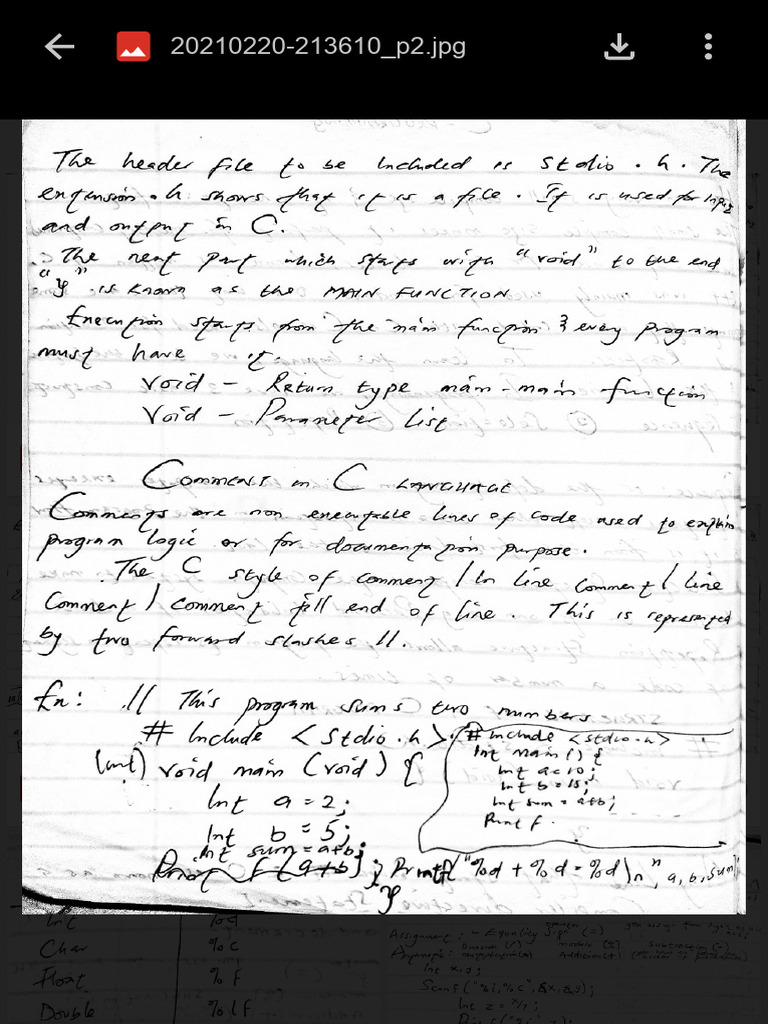 20210220-213610_p2.jpg
The header file to be Included is stdio.h. The
extension .h shows that it is a file. It is used for Input
and output in C.
The next part which starts with "void" to the end
"}" is known as the MAIN FUNCTION
Execution starts from the main function & every program
must have it.
Void - Return type main-main function
Void - Parameter List
COMMENTS in C LANGUAGE
Comments are non executable lines of code used to explain
program logic or for documentation purpose.
The C style of comment / In line comment / line
Comment / comment till end of line. This is represented
by two forward slashes //.
Ex: // This program sums two numbers
# Include <stdio.h>
(int) void main (void) {
Int a = 2;
Int b = 5;
Int sum = a+b;
Printf (a+b); Printf("%d + %d = %d\n", a, b, sum)
}
# include <stdio.h>
Int main () {
Int a = 10;
Int b = 15;
Int sum = a+b;
Print f
Int %d
Char %c
Float %f
Double %lf
Assignment: - Equality sign (=)
Int x, y;